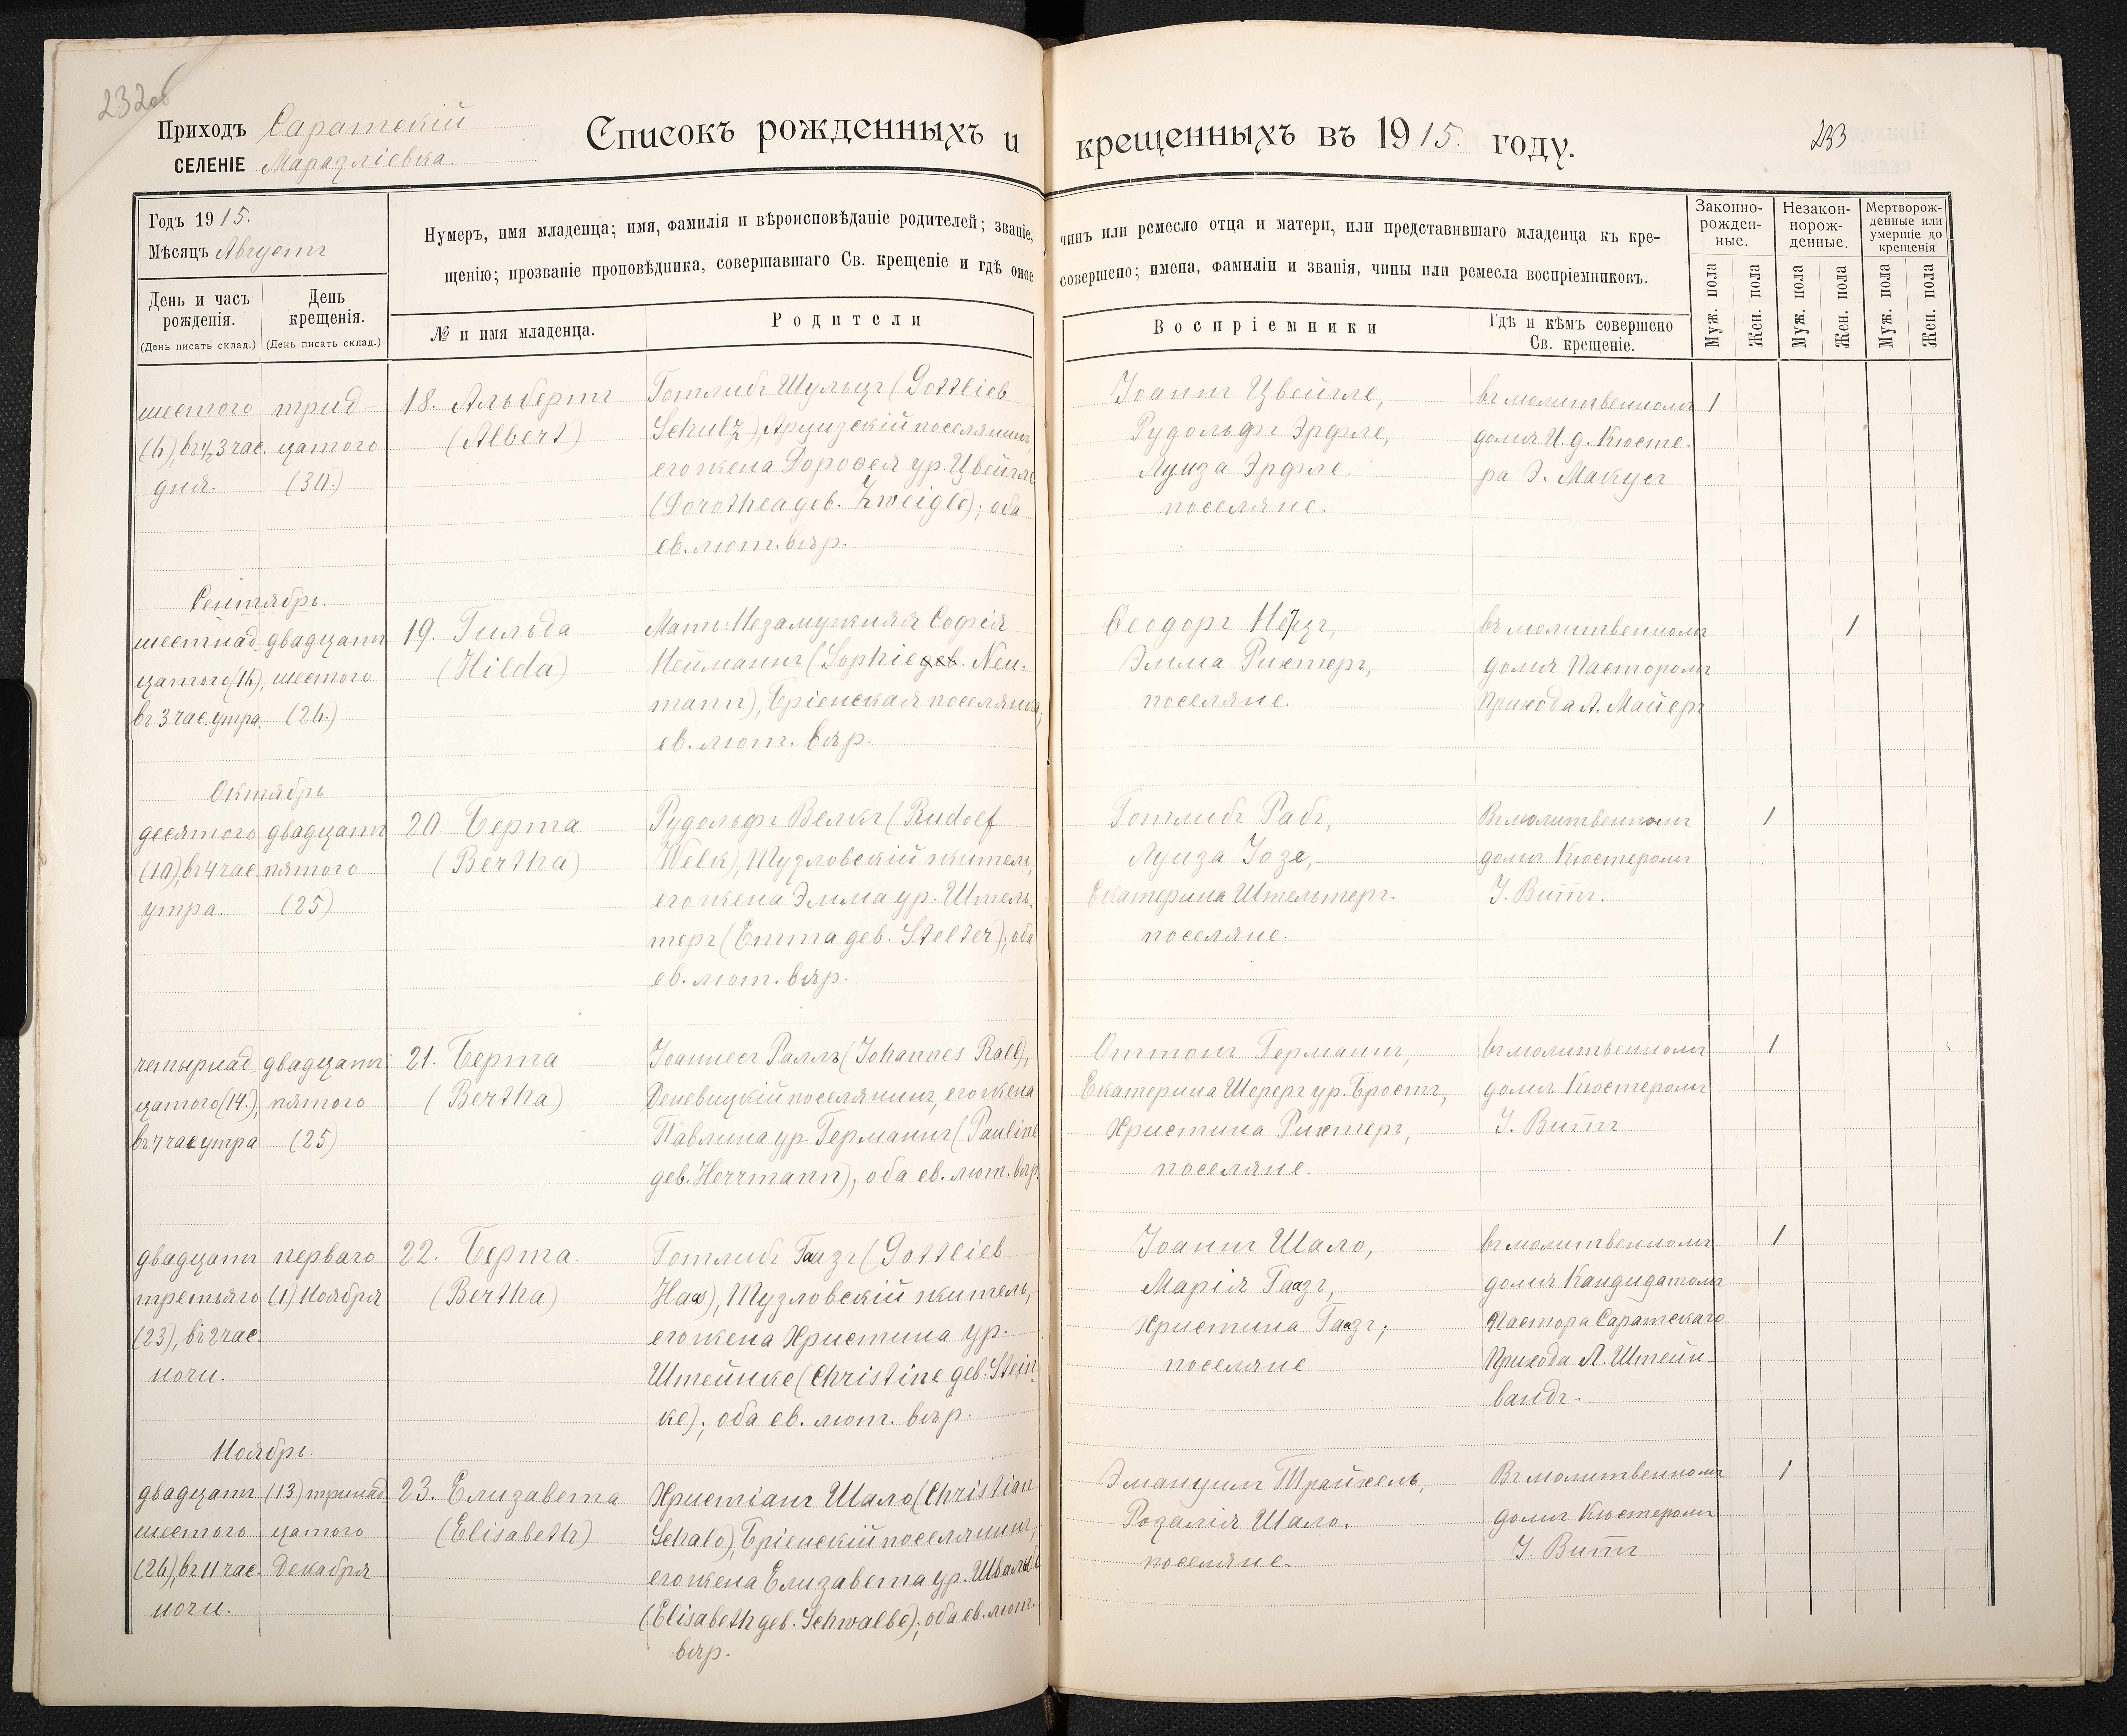 232об
Приходъ Саратскій
СЕЛЕНІЕ Маразліевка.
Списокъ рожденныхъ и крещенныхъ въ 1915. году.
233
Годъ 1915.
Мѣсяцъ Августъ
Нумеръ, имя младенца; имя, фамилія и вѣроисповѣданіе родителей; званіе, чинъ или ремесло отца и матери, или представившаго младенца къ кре-
щенію; прозваніе проповѣдника, совершавшаго Св. крещеніе и гдѣ оное совершено; имена, фамиліи и званія, чины или ремесла воспріемниковъ.
День и часъ рожденія.
(День писать склад.)
День крещенія.
(День писать склад.)
№ и имя младенца.
Родители
Воспріемники
Гдѣ и кѣмъ совершено
Св. крещеніе.
Законно-
рожден-
ные.
Незакон-
норож-
денные.
Мертворож-
денные или
умершіе до
крещенія
Муж. пола
Жен. пола
Муж. пола
Жен. пола
Муж. пола
Жен. пола
шестого
(6), въ ½3 час.
дня.
трид-
цатого
(30.)
18. Альбертъ
(Albert)
Готлибъ Шульцъ (Gottlieb
Schulz), Арцизскій поселянинъ,
его жена Доротея ур. Цвейгле
(Dorothea geb. Zweigle); оба
ев. лют. вѣр.
Іоаннъ Цвейгле,
Рудольфъ Эрфле,
Луиза Эрфле.
поселяне.
въ молитвенномъ
домѣ И. д. Кюсте-
ра Э. Макусъ
1
Сентябрь.
шестнад
цатого (16),
въ 3 час. утра.
двадцать
шестого
(26.)
19. Гильда
(Hilda)
Мать: Незамужняя Софія
Нейманнъ (Sophie geb. Neu-
mann), Бріенская поселянка,
ев. лют. вѣр.
Ѳеодоръ
Эмма Рихтеръ,
поселяне.
въ молитвенномъ
домѣ Пасторомъ
Прихода А. Майеръ
1
Октябрь
десятого
(10), въ 4 час.
утра.
двадцать
пятого
(25)
20 Берта
(Bertha)
Рудольфъ Велкъ (Rudolf
Welk), Тузловскій житель,
его жена Эмма ур. Штель-
теръ (Emma geb. Stelter), оба
ев. лют. вѣр.
Готлибъ Рабъ,
Луиза Іозе,
Екатерина Штельтеръ.
поселяне.
Въ молитвенномъ
домѣ Кюстеромъ
І. Виттъ.
1
четырнад
цатого (14.),
въ 7 час утра
двадцать
пятого
(25)
21. Берта
(Bertha)
Іоаннесъ Ралль (Johannes Rall),
Деневицкій поселянинъ, его жена
Павлина ур Германнъ (Pauline
geb. Herrmann), оба ев. лют. вѣр.
Оттонъ Германнъ,
Екатерина Шереръ ур. Бростъ,
Христина Рихтеръ,
поселяне.
въ молитвенномъ
домѣ Кюстеромъ
І. Виттъ
1
двадцать
третьяго
(23), въ 2 час.
ночи.
перваго
(1) Ноября
22. Берта
(Bertha)
Готлибъ Гаазъ (Gottlieb
Haas), Тузловскій житель,
его жена Христина ур.
Штейнке (Christine geb. Stein-
ke); оба ев. лют. вѣр.
Іоаннъ Шало,
Марія Гаазъ,
Христина Гаазъ;
поселяне
въ молитвенномъ
домѣ Кандидатомъ
Пастора Саратскаго
Прихода Л. Штейн-
вандъ.
1
Ноябрь.
двадцать
шестого
(26), въ 11 час.
ночи.
(13) тринад
цатого
Декабря
23. Елизавета
(Elisabeth)
Христіанъ Шало (Christian
Schalo), Бріенскій поселянинъ,
его жена Елизавета ур. Швальбе
(Elisabeth geb. Schwalbe); оба ев. лют.
вѣр.
Эмануилъ Трайхель,
Розалія Шало.
поселяне.
Въ молитвенномъ
домѣ Кюстеромъ
І. Виттъ
1